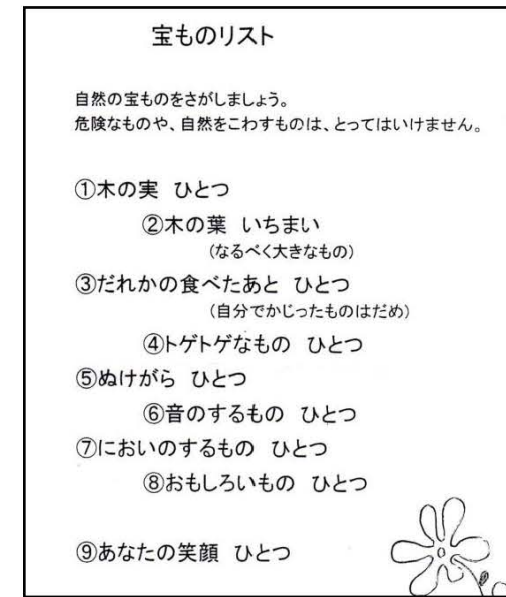 宝ものリスト
自然の宝ものをさがしましょう。
危険なものや、自然をこわすものは、とってはいけません。
①木の実 ひとつ
②木の葉 いちまい
(なるべく大きなもの)
③だれかの食べたあと ひとつ
(自分でかじったものはだめ)
④トゲトゲなもの ひとつ
⑤ぬけがら ひとつ
⑥音のするもの ひとつ
⑦においのするもの ひとつ
⑧おもしろいもの ひとつ
⑨あなたの笑顔 ひとつ